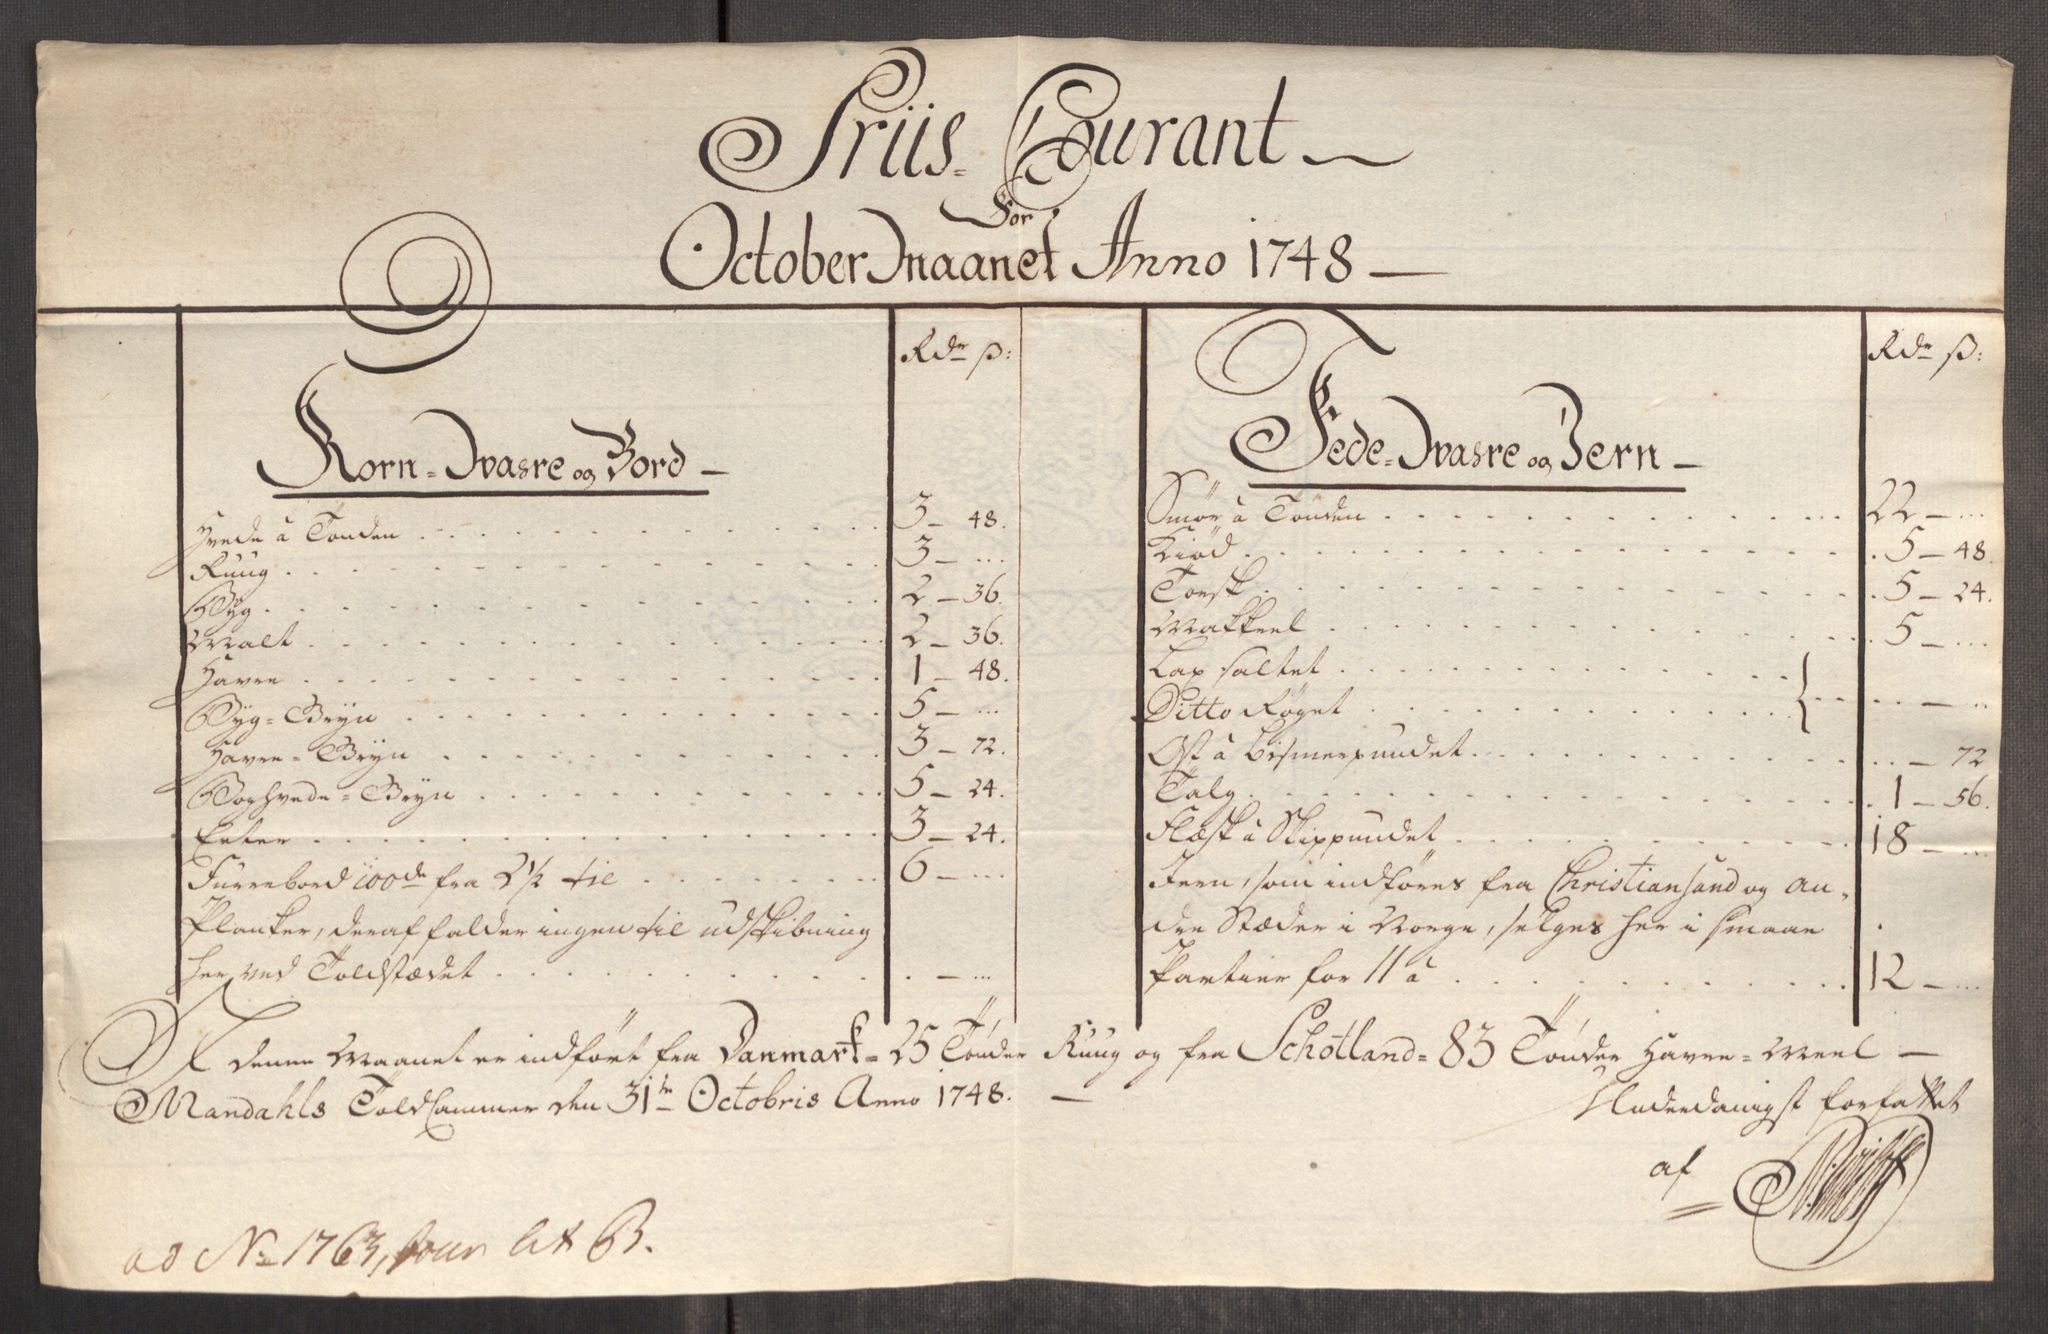 Priis-Courant
For
October Maanet Anno 1748
Rdr ß:
Korn-Vahre og Bord
Hvede à Tönden 3 – 48.
Ruug 3 – ...
Byg 2 – 36.
Malt 2 – 36.
Havre 1 – 48.
Byg-Gryn 5 – ...
Havre-Gryn 3 – 72.
Boghvede-Gryn 5 – 24.
Erter 3 – 24.
Furrebord 100de fra 2 1/2 til 6 – ...
Planker, deraf falder ingen til udskibning
her ved Toldstædet – ...
Rdr ß:
Fede-Vahre og Jern
Smör à Tönden 22 – ...
Kiöd 5 – 48.
Torsk 5 – 24.
Makkrel 5 – ...
Lax saltet
Ditto Röget – ...
Ost à Bismerpundet – 72
Talg 1 – 56.
Flæsk à Skippundet 18 – ...
Jern, som indföres fra Christiansand og an-
dre Stæder i Norge, sælges her i smaae
Partier for 11 à 12 – ...
I denne Maanet er indfört fra Danmark = 25 Tönder Ruug og fra Schotland = 83 Tönder Havre-Meel –
Mandahls Told Cammer den 31te Octobris Anno 1748. –
Underdanigst forfattet
af
ad No 1763, Jour lit B.